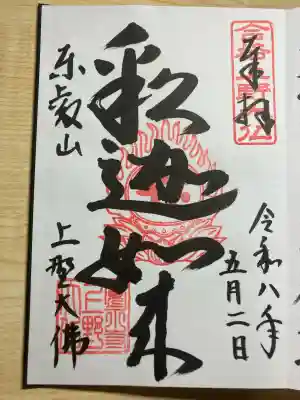 奉拝
令和八年
五月二日
釈迦如来
東叡山
上野大佛